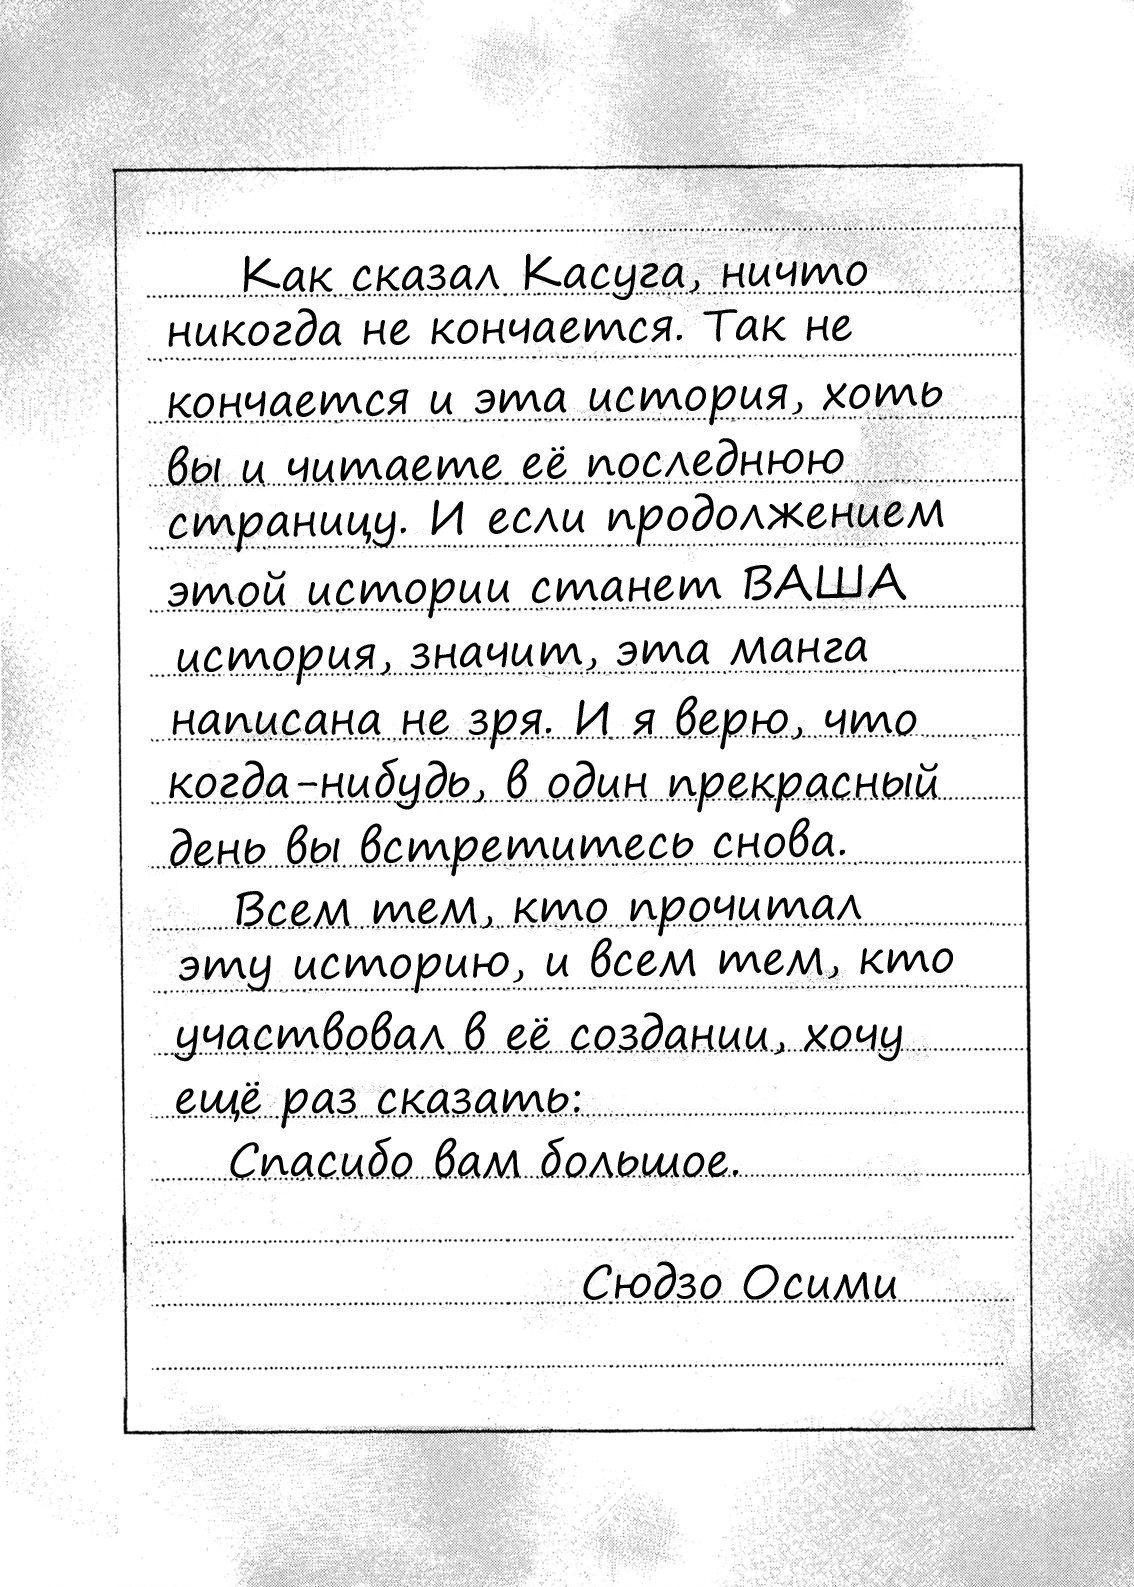 Как сказал Касуга, ничто
никогда не кончается. Так не
кончается и эта история, хоть
вы и читаете её последнюю
страницу. И если продолжением
этой истории станет ВАША
история, значит, эта манга
написана не зря. И я верю, что
когда-нибудь, в один прекрасный
день вы встретитесь снова.
Всем тем, кто прочитал
эту историю, и всем тем, кто
участвовал в её создании, хочу
ещё раз сказать:
Спасибо вам большое.
Сюдзо Осими